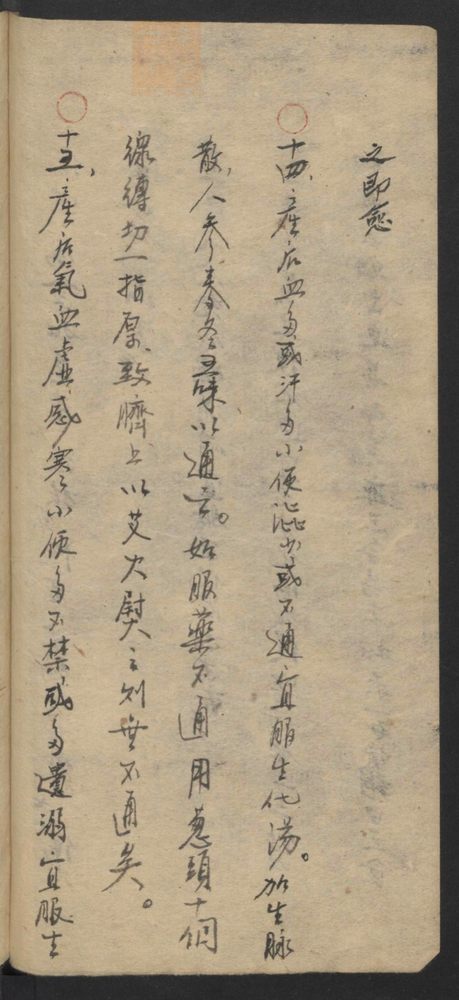 之即愈
十四、產后血多或汗多小便澁少或不通宜服生化湯。加生脉
散、人參麥冬五味以通之。如服藥不通用葱頭十個
線縛切一指厚、致臍上以艾火熨之則無不通矣。
十五、產后氣血虛感寒小便多不禁或多遺溺宜服生